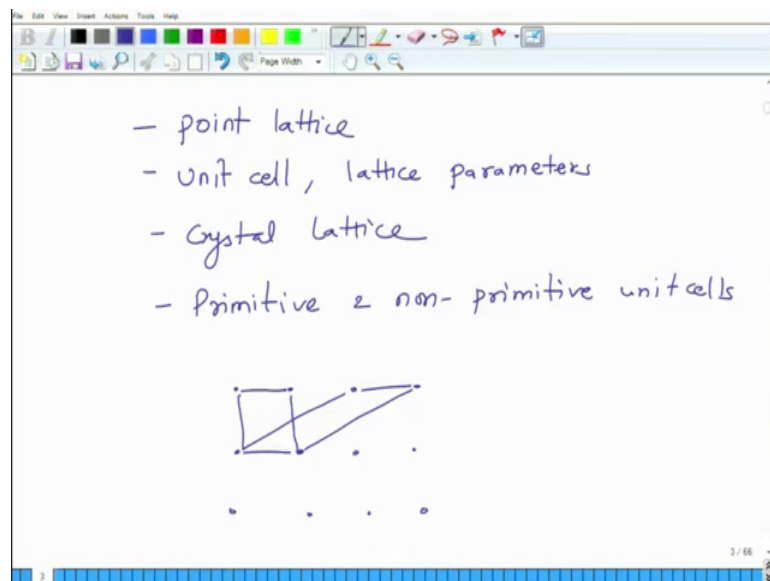 File Edit View Insert Actions Tools Help
B I
Page Width
- point lattice
- Unit cell, lattice parameters
- Crystal Lattice
- Primitive & non-primitive unit cells
3/66
3